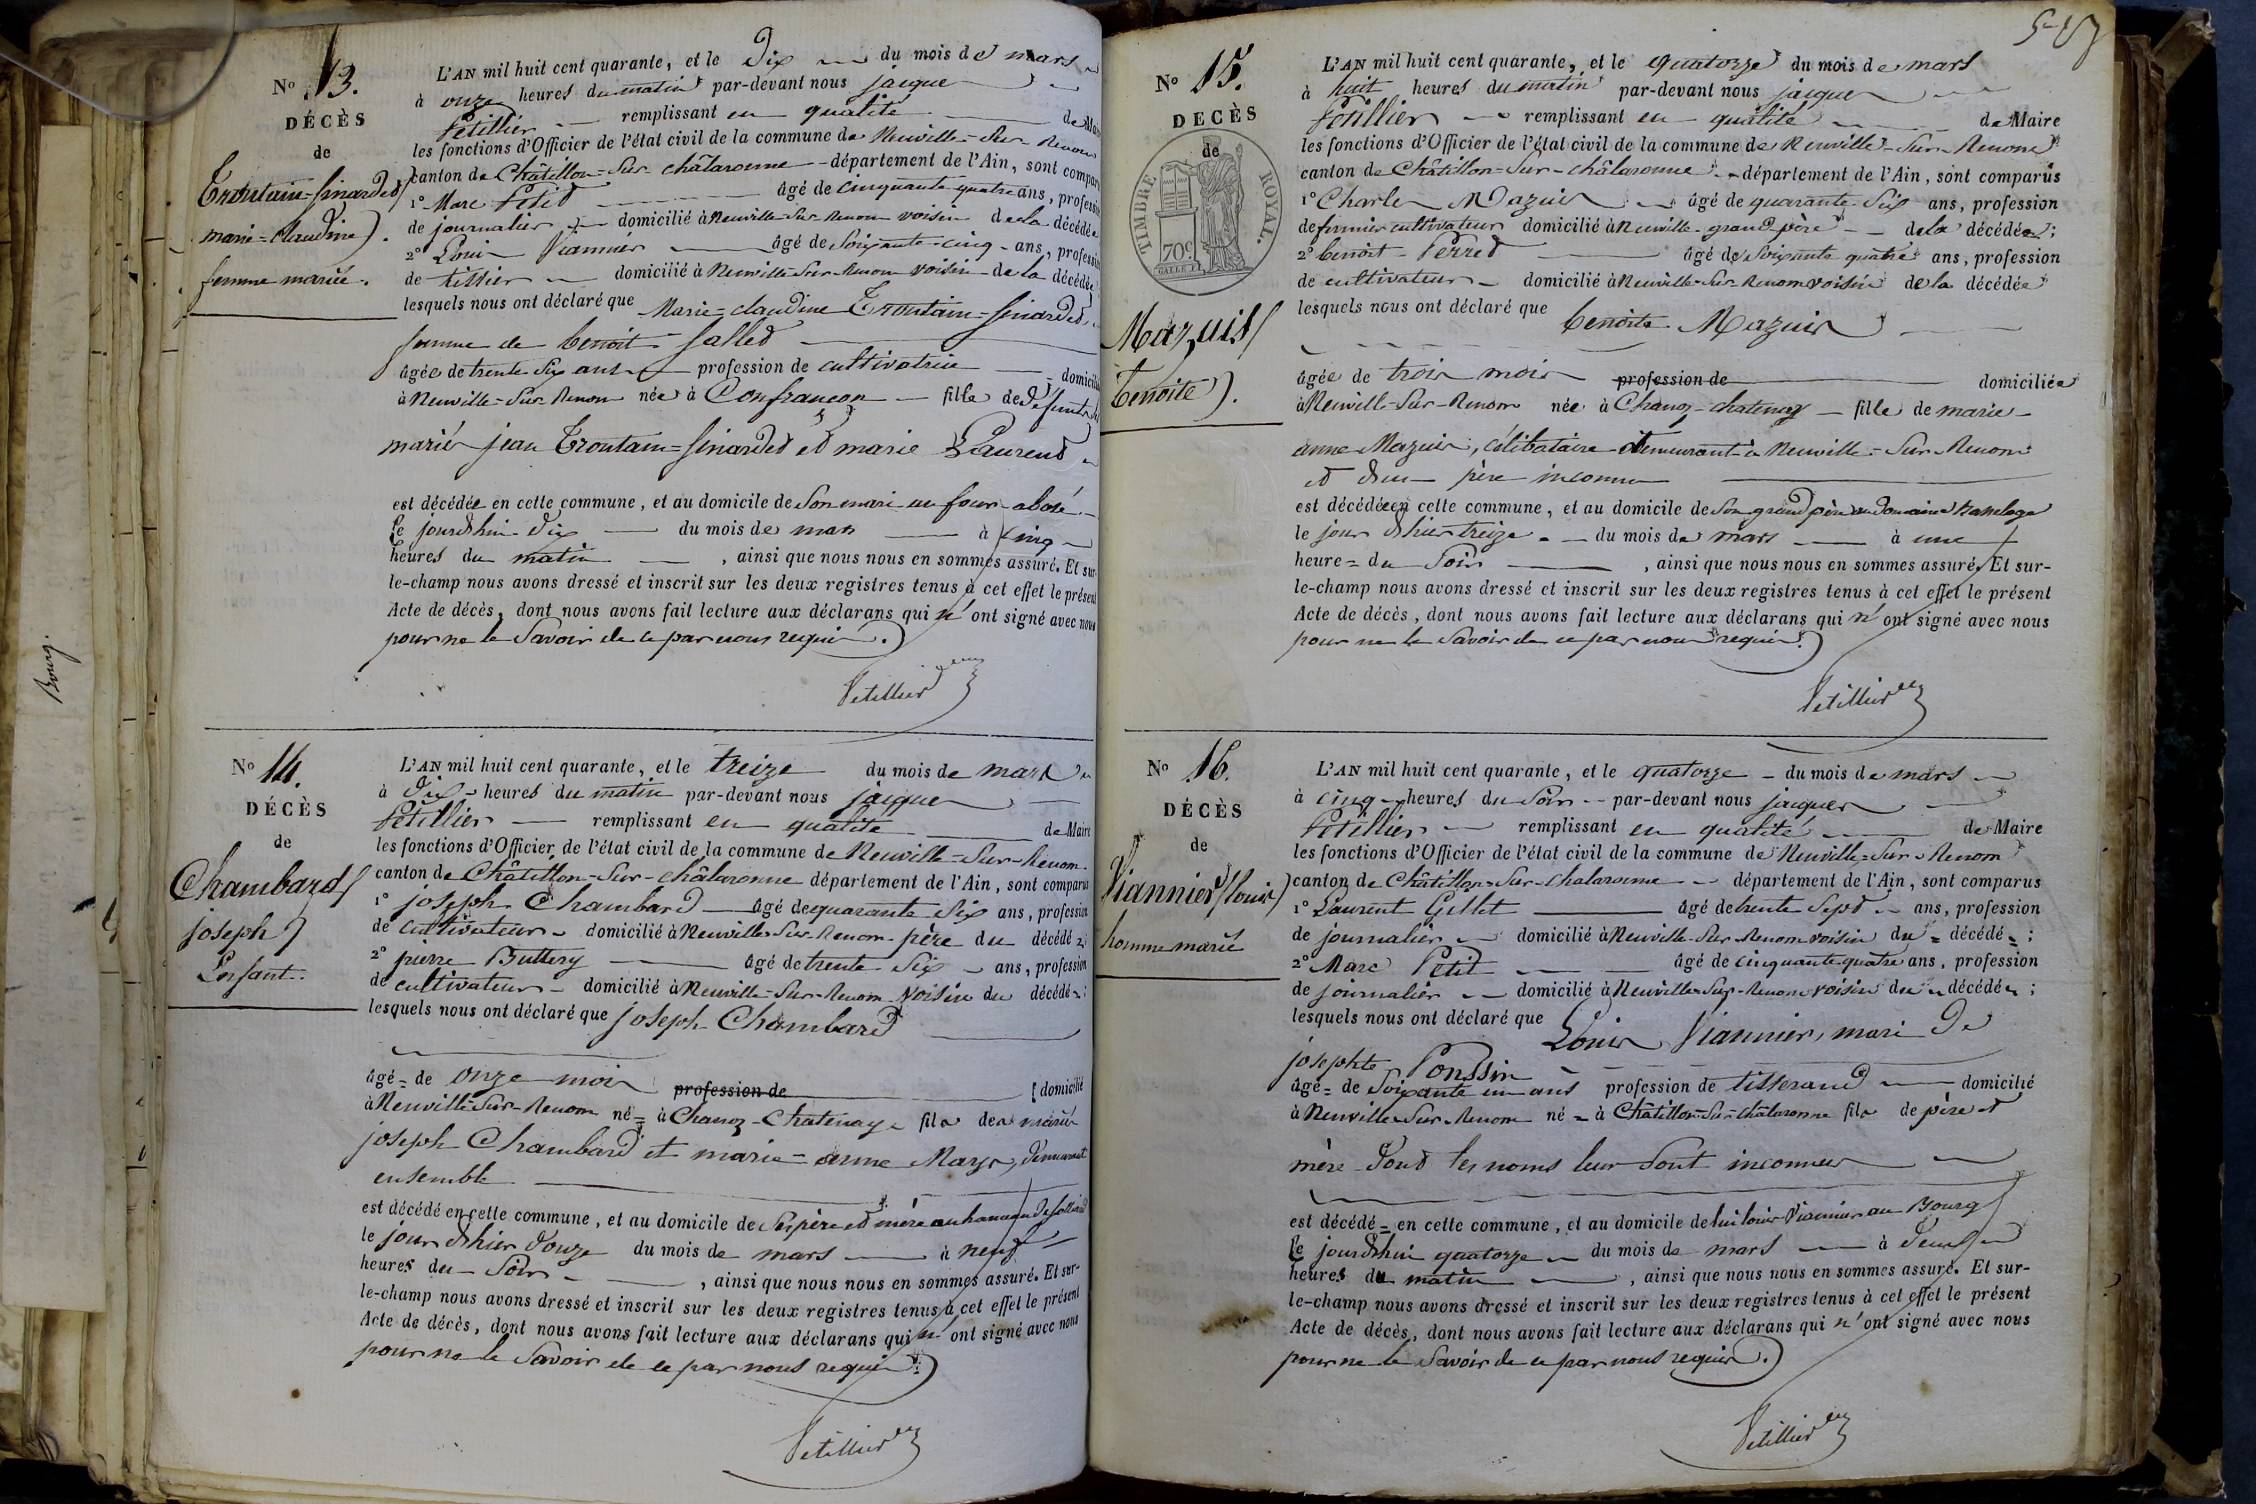 Bourg.
No 13.
DÉCÈS
de
Troutain=Sinardet
marie=claudine).
femme mariée.
L'AN mil huit cent quarante, et le Dix du mois de mars
à onze heures du matin par-devant nous jacques
Petillier remplissant en qualité de Maire
les fonctions d'Officier de l'état civil de la commune de Neuville-Sur-Renom
canton de Châtillon-Sur-châlaronne département de l'Ain, sont comparus
1o Marc Petit âgé de cinquante-quatre ans, profession
de journalier domicilié à Neuville-Sur-Renom voisin de la décédée
2o Louis Viannier âgé de Soixante-cinq ans, profession
de tissier domicilié à Neuville-Sur-Renom voisin de la décédée
lesquels nous ont déclaré que Marie=claudine Troutain=Sinardet,
femme de benoit Sallet
âgée de trente Six ans profession de cultivatrice domiciliée
à Neuville-Sur-Renom née à Confrançon fille de Defunts
mariés jean Troutain=Sinardet et marie Laurent
est décédée en cette commune, et au domicile de Son mari au four-à
le jourdhui Dix du mois de mars à Cinq
heures du matin , ainsi que nous nous en sommes assuré. Et sur-
le-champ nous avons dressé et inscrit sur les deux registres tenus à cet effet le présent
Acte de décès, dont nous avons fait lecture aux déclarans qui n'ont signé avec nous
pour ne le Savoir de ce par nous requis.)
Petillier
No 14.
DÉCÈS
de
Chambard
joseph)
Enfant.
L'AN mil huit cent quarante, et le treize du mois de mars
à Dix heures du matin par-devant nous jacques
Petillier remplissant en qualité de Maire
les fonctions d'Officier de l'état civil de la commune de Neuville-Sur-Renom
canton de Châtillon-Sur-châlaronne département de l'Ain, sont comparus
1o joseph Chambard âgé de quarante Six ans, profession
de cultivateur domicilié à Neuville-Sur-Renom père du décédé
2o pierre Buttery âgé de trente Six ans, profession
de cultivateur domicilié à Neuville-Sur-Renom voisin du décédé ;
lesquels nous ont déclaré que joseph Chambard
âgé = de onze mois profession de domicilié
à Neuville-Sur-Renom né = à Chanoz-Chatenay fils des mariés
joseph Chambard et marie=anne Mays, Demeurant
ensemble
est décédé en cette commune, et au domicile de Ses père et mère au hameau de
le jour Dhier Douze du mois de mars à neuf
heures du Soir , ainsi que nous nous en sommes assuré. Et sur-
le-champ nous avons dressé et inscrit sur les deux registres tenus à cet effet le présent
Acte de décès, dont nous avons fait lecture aux déclarans qui n'ont signé avec nous
pour ne le Savoir de ce par nous requis.)
Petillier
No 15.
DECÈS
de
TIMBRE ROYAL.
70c
Mazuis
benoite).
L'AN mil huit cent quarante, et le quatorze du mois de mars
à huit heures du matin par-devant nous jacques
Petillier remplissant en qualité de Maire
les fonctions d'Officier de l'état civil de la commune de Neuville-Sur-Renom
canton de Châtillon-Sur-châlaronne département de l'Ain, sont comparus
1o Charles Mazuis âgé de quarante-Six ans, profession
de fermier cultivateur domicilié à Neuville grand père de la décédée ;
2o benoit Perret âgé de Soixante quatre ans, profession
de cultivateur domicilié à Neuville-Sur-Renom voisin de la décédée
lesquels nous ont déclaré que benoite Mazuis
âgée de trois mois profession de domiciliée
à Neuville-Sur-Renom née à Chanoz-chatenay fille de marie-
anne Mazuis, célibataire Demeurant à Neuville-Sur-Renom
et Dun père inconnu
est décédée en cette commune, et au domicile de Son grand père au Domaine
le jour Dhier treize du mois de mars à une
heure = du Soir , ainsi que nous nous en sommes assuré. Et sur-
le-champ nous avons dressé et inscrit sur les deux registres tenus à cet effet le présent
Acte de décès, dont nous avons fait lecture aux déclarans qui n'ont signé avec nous
pour ne le Savoir de ce par nous requis.)
Petillier
No 16.
DÉCÈS
de
Viannier (louis)
homme marié
L'AN mil huit cent quarante, et le quatorze du mois de mars
à cinq heures du Soir par-devant nous jacques
Petillier remplissant en qualité de Maire
les fonctions d'Officier de l'état civil de la commune de Neuville-Sur-Renom
canton de Châtillon-Sur-chalaronne département de l'Ain, sont comparus
1o Laurent Gillet âgé de trente Sept ans, profession
de journalier domicilié à Neuville-Sur-Renom voisin du = décédé = ;
2o Marc Petit âgé de cinquante quatre ans, profession
de journalier domicilié à Neuville-Sur-Renom voisin du décédé ;
lesquels nous ont déclaré que Louis Viannier, mari De
josephte Ponssin
âgé = de Soixante un ans profession de tisserand domicilié
à Neuville-Sur-Renom né = à Châtillon-Sur-châlaronne fils de père et
mère Dont les noms leur Sont inconnus
est décédé = en cette commune, et au domicile de lui louis Viannier au Bourg
le jourdhui quatorze du mois de mars à Deux
heures du matin , ainsi que nous nous en sommes assuré. Et sur-
le-champ nous avons dressé et inscrit sur les deux registres tenus à cet effet le présent
Acte de décès, dont nous avons fait lecture aux déclarans qui n'ont signé avec nous
pour ne le Savoir de ce par nous requis.)
Petillier